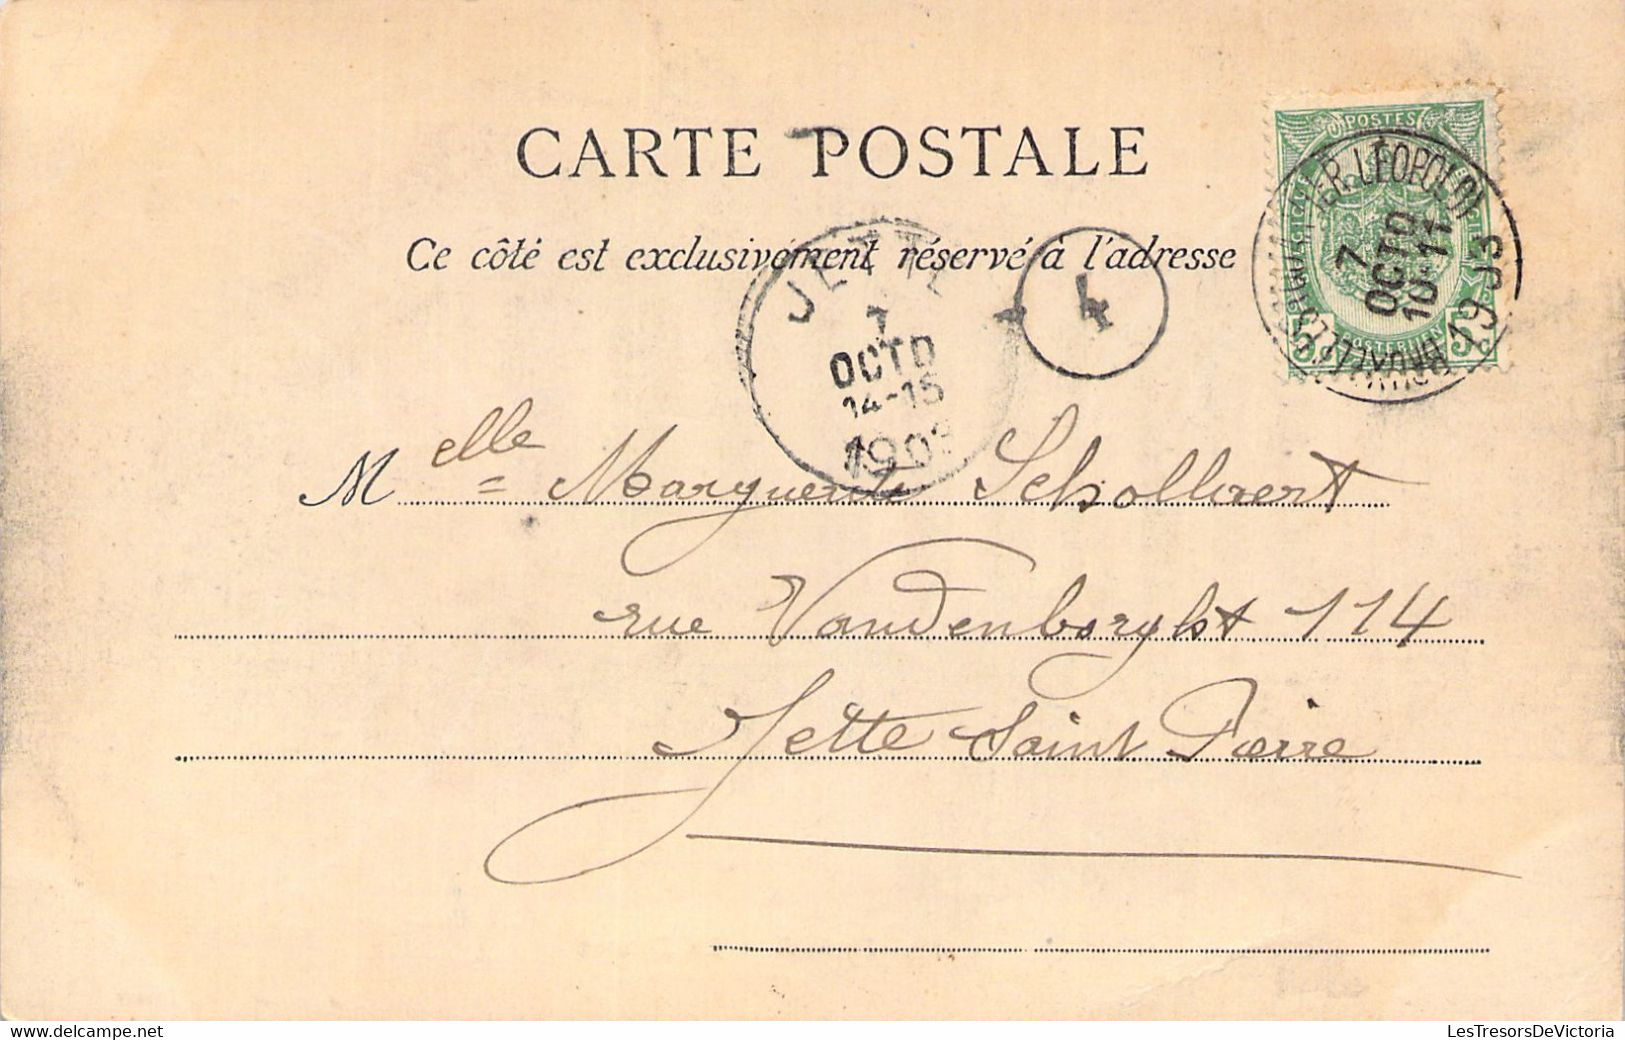 CARTE POSTALE
Ce côté est exclusivement réservé à l'adresse
POSTES
BRUXELLES (QUARTIER LÉOPOLD)
7
OCTO
10-11
1903
5 POSTERIJEN 5
JETTE
7
OCTO
14-15
190
4
Melle = Marguerite Schollaert
rue Vandenborght 114
Jette Saint Pierre
LesTresorsDeVictoria